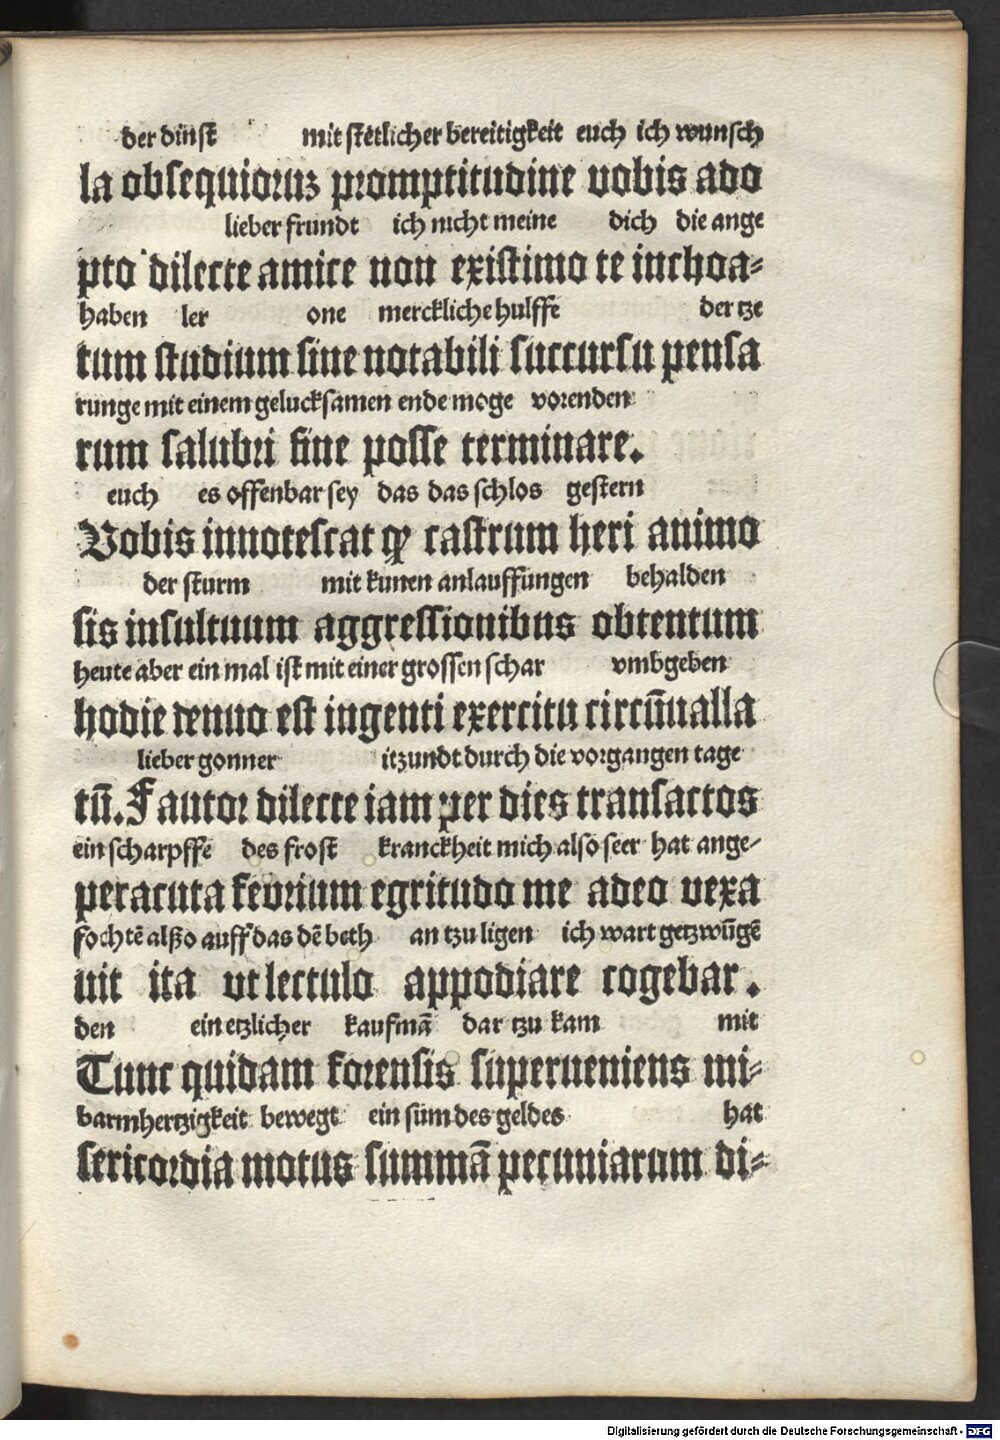 der dinst mit stetlicher bereitigkeit euch ich wunsch
la obsequioruz promptitudine vobis ado
lieber frundt ich nicht meine dich die ange
pto dilecte amice non existimo te inchoa-
haben ler one merckliche hulffe der tze
tum studium sine notabili succursu pensa
runge mit einem gelucksamen ende moge vorenden
rum salubri fine posse terminare.
euch es offenbar sey das das schlos gestern
Vobis innotescat ꝙ castrum heri animo
der sturm mit kunen anlauffungen behalden
sis insultuum aggressionibus obtentum
heute aber ein mal ist mit einer grossen schar vmbgeben
hodie denuo est ingenti exercitu circūualla
lieber gonner itzundt durch die vorgangen tage
tū. Fautor dilecte iam per dies transactos
ein scharpffe des frost kranckheit mich also seer hat ange-
peracuta febrium egritudo me adeo vexa
fochtē alßo auff das dē beth an tzu ligen ich wart getzwūgē
uit ita vt lectulo appodiare cogebar.
den ein etzlicher kaufmā dar tzu kam mit
Tunc quidam forensis superueniens mi-
barmhertzigkeit bewegt ein sum des geldes hat
sericordia motus summā pecuniarum di-
Digitalisierung gefördert durch die Deutsche Forschungsgemeinschaft - DFG